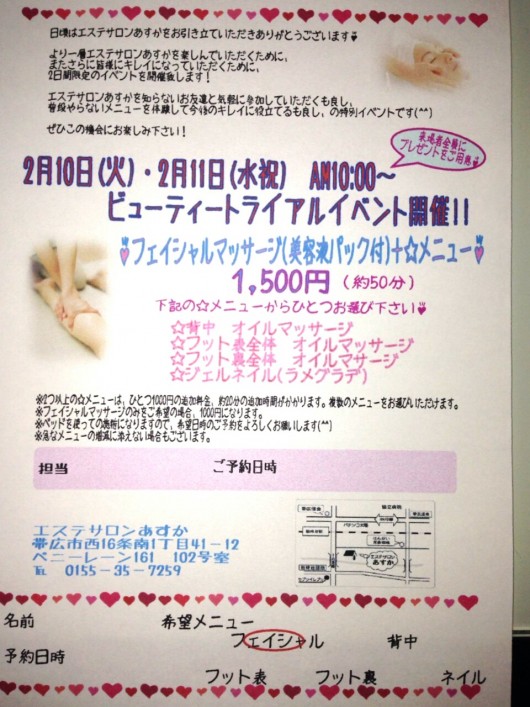 日頃はエステサロンあすかをお引き立ていただきありがとうございます
より一層エステサロンあすかを楽しんでいただくために、
またさらに皆様にキレイになっていただくために、
2日間限定のイベントを開催致します！
エステサロンあすかを知らないお友達と気軽に参加していただくも良し、
普段やらないメニューを体験して今後のキレイに役立てるも良し、の特別イベントです(^^)
ぜひこの機会にお楽しみ下さい！
来場者全員に
プレゼントをご用意
2月10日(火)・2月11日(水祝) AM10:00〜
ビューティートライアルイベント開催!!
フェイシャルマッサージ(美容液パック付)+☆メニュー
1,500円 (約50分)
下記の☆メニューからひとつお選び下さい
☆背中 オイルマッサージ
☆フット表全体 オイルマッサージ
☆フット裏全体 オイルマッサージ
☆ジェルネイル(ラメグラデ)
※2つ以上の☆メニューは、ひとつ1000円の追加料金、約20分の追加時間がかかります。複数のメニューをお選びいただけます。
※フェイシャルマッサージのみをご希望の場合、1000円になります。
※ベッドを使っての施術になりますので、希望日時のご予約をよろしくお願いします(^^)
※急なメニューの増減に添えない場合もございます。
担当 ご予約日時
エステサロンあすか
帯広市西16条南1丁目41-12
ペニーレーン161 102号室
℡ 0155-35-7259
エステサロン
あすか
名前 希望メニュー
フェイシャル 背中
予約日時
フット表 フット裏 ネイル